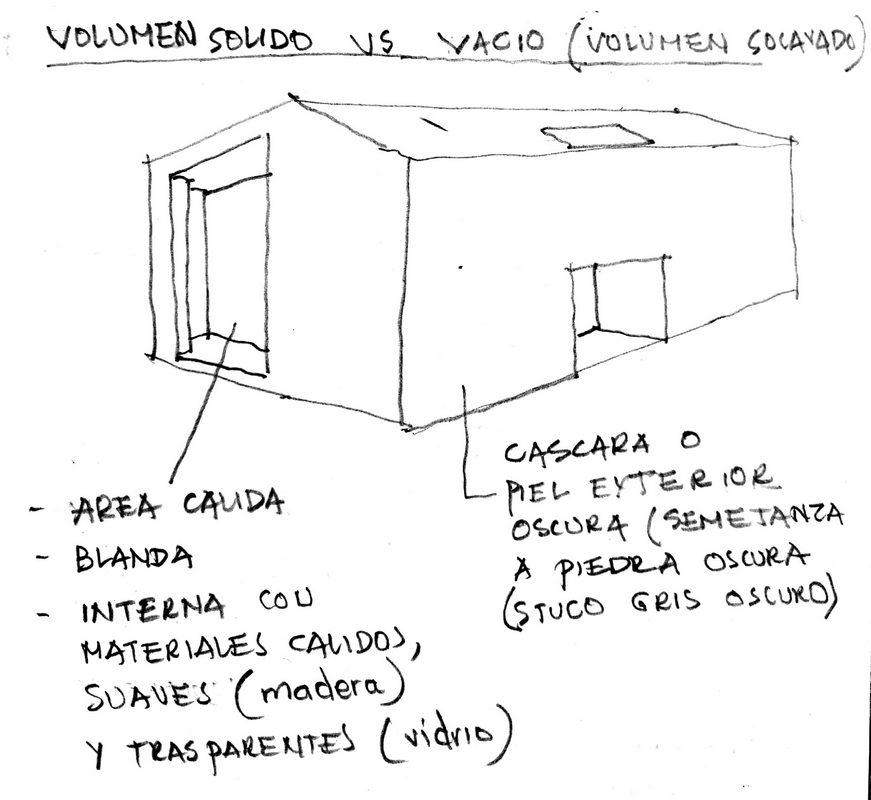 VOLUMEN SOLIDO VS VACIO (VOLUMEN SOCAVADO)
- AREA CALIDA
- BLANDA
- INTERNA CON
MATERIALES CALIDOS,
SUAVES (madera)
Y TRASPARENTES (vidrio)
CASCARA O
PIEL EXTERIOR
OSCURA (SEMETANZA
A PIEDRA OSCURA
(STUCO GRIS OSCURO)